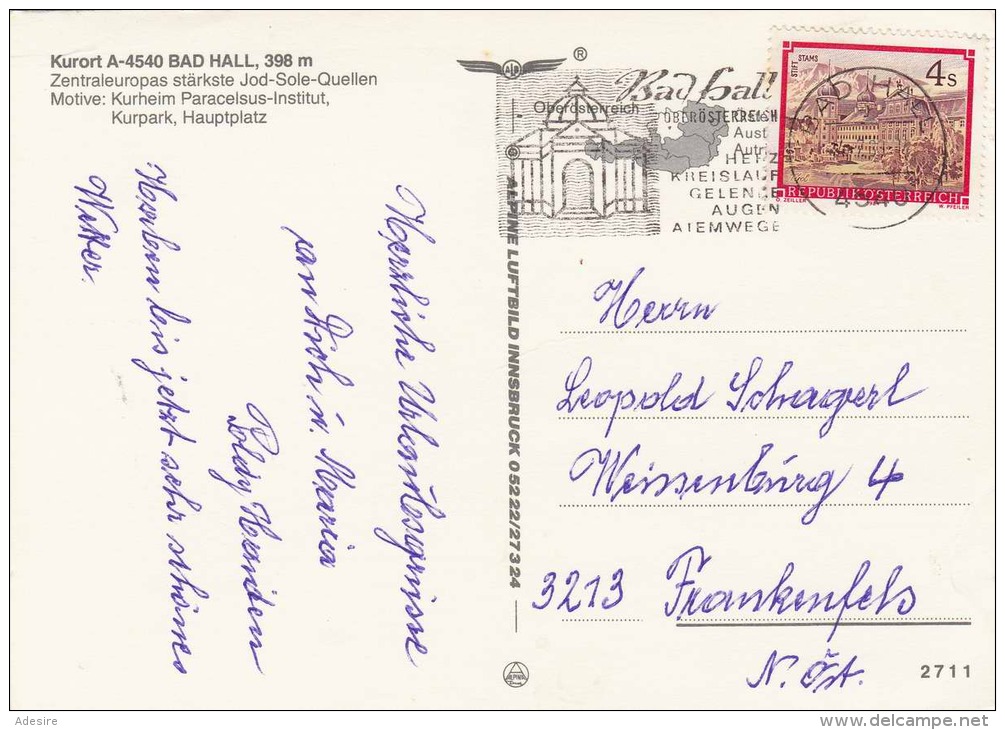 Kurort A-4540 BAD HALL, 398 m
Zentraleuropas stärkste Jod-Sole-Quellen
Motive: Kurheim Paracelsus-Institut,
Kurpark, Hauptplatz
Herzliche Urlaubsgrüsse
an Dich u. Maria
Poldy
Haben bis jetzt sehr schönes
Wetter.
ALPINE LUFTBILD INNSBRUCK 05222/27324
ALB
®
Oberösterreich
Bad Hall
OBERÖSTERREICH
HERZ
KREISLAUF
GELENKE
AUGEN
ATEMWEGE
BAD HALL
4540
STIFT STAMS
4 S
REPUBLIK ÖSTERREICH
O. ZEILLER
W. PFEILER
Herrn
Leopold Schagerl
Weissenburg 4
3213 Frankenfels
N. Öst.
ALPINE
2711
Adesire
delcampe.net